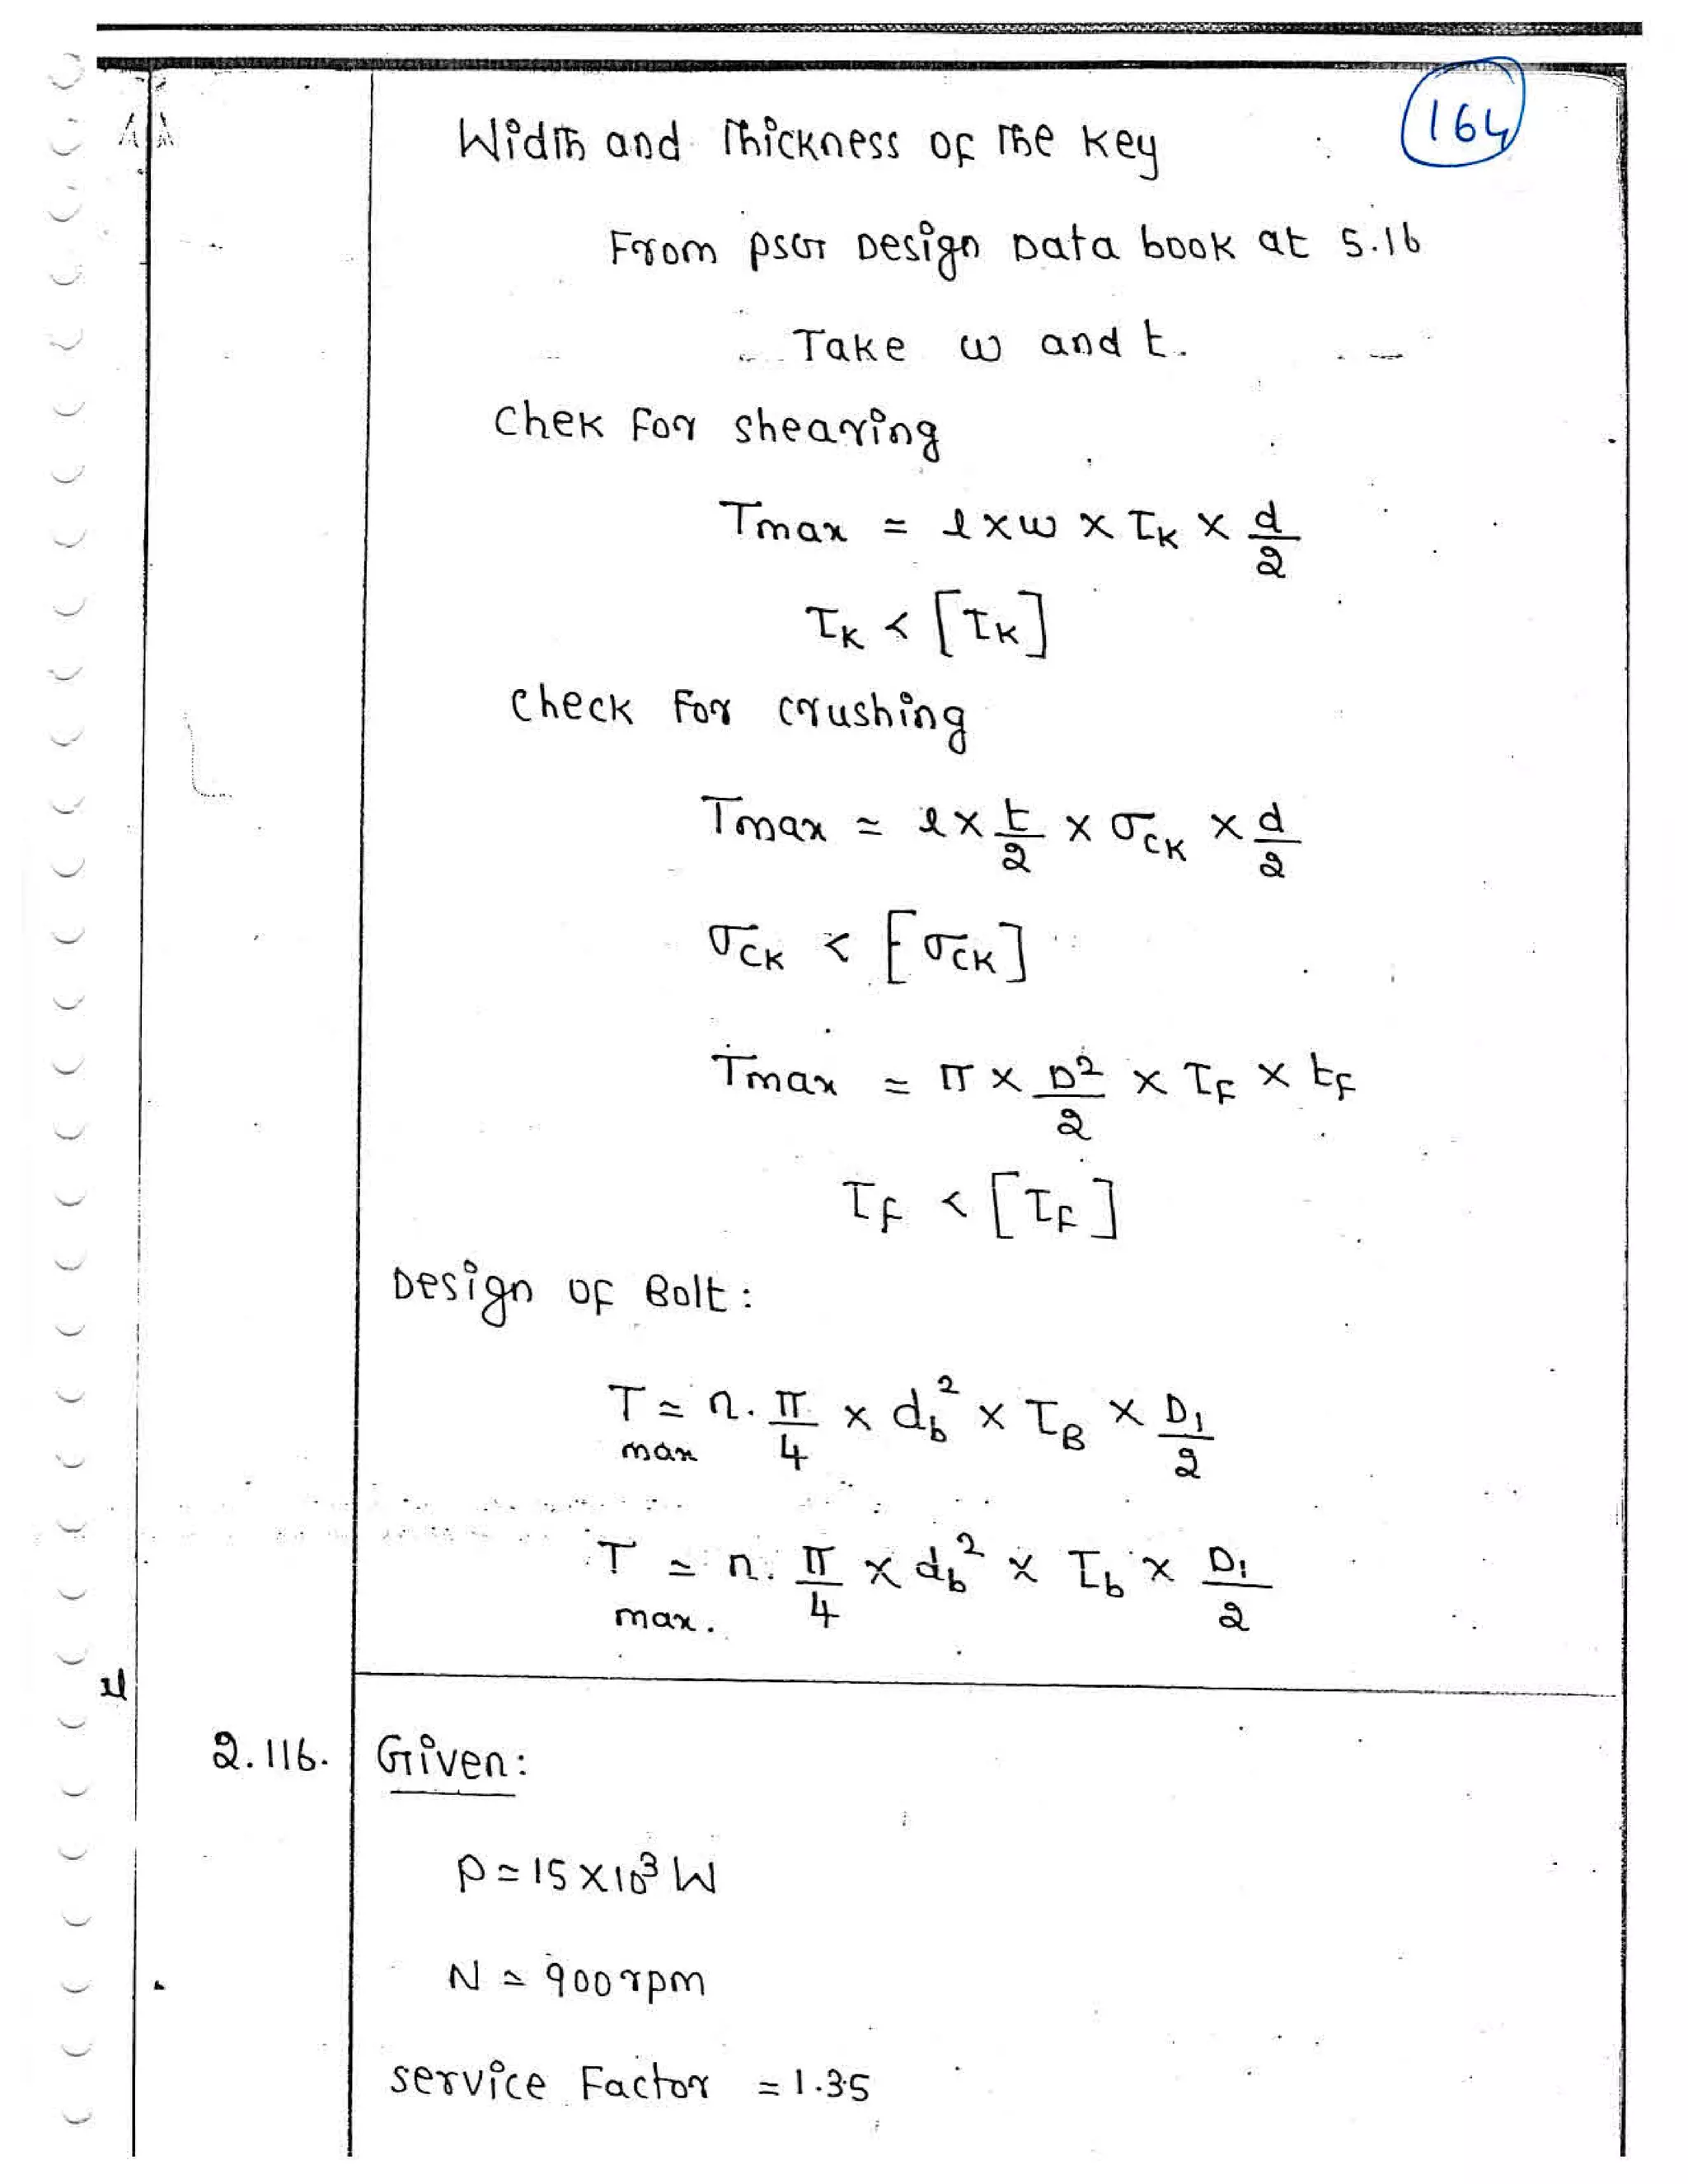 164
Width and Thickness of The key
From PSG Design Data book at 5.16
Take w and t.
Chek For shearing
Tmax = l × w × τK × d/2
τK < [τK]
Check For crushing
Tmax = l × t/2 × σCK × d/2
σCK < [σCK]
Tmax = π × D²/2 × τF × tF
τF < [τF]
Design of Bolt:
Tmax = n. π/4 × db² × τB × D1/2
Tmax. = n. π/4 × db² × τb × D1/2
2.116. Given:
P = 15 × 10³ W
N = 900 rpm
service Factor = 1.35